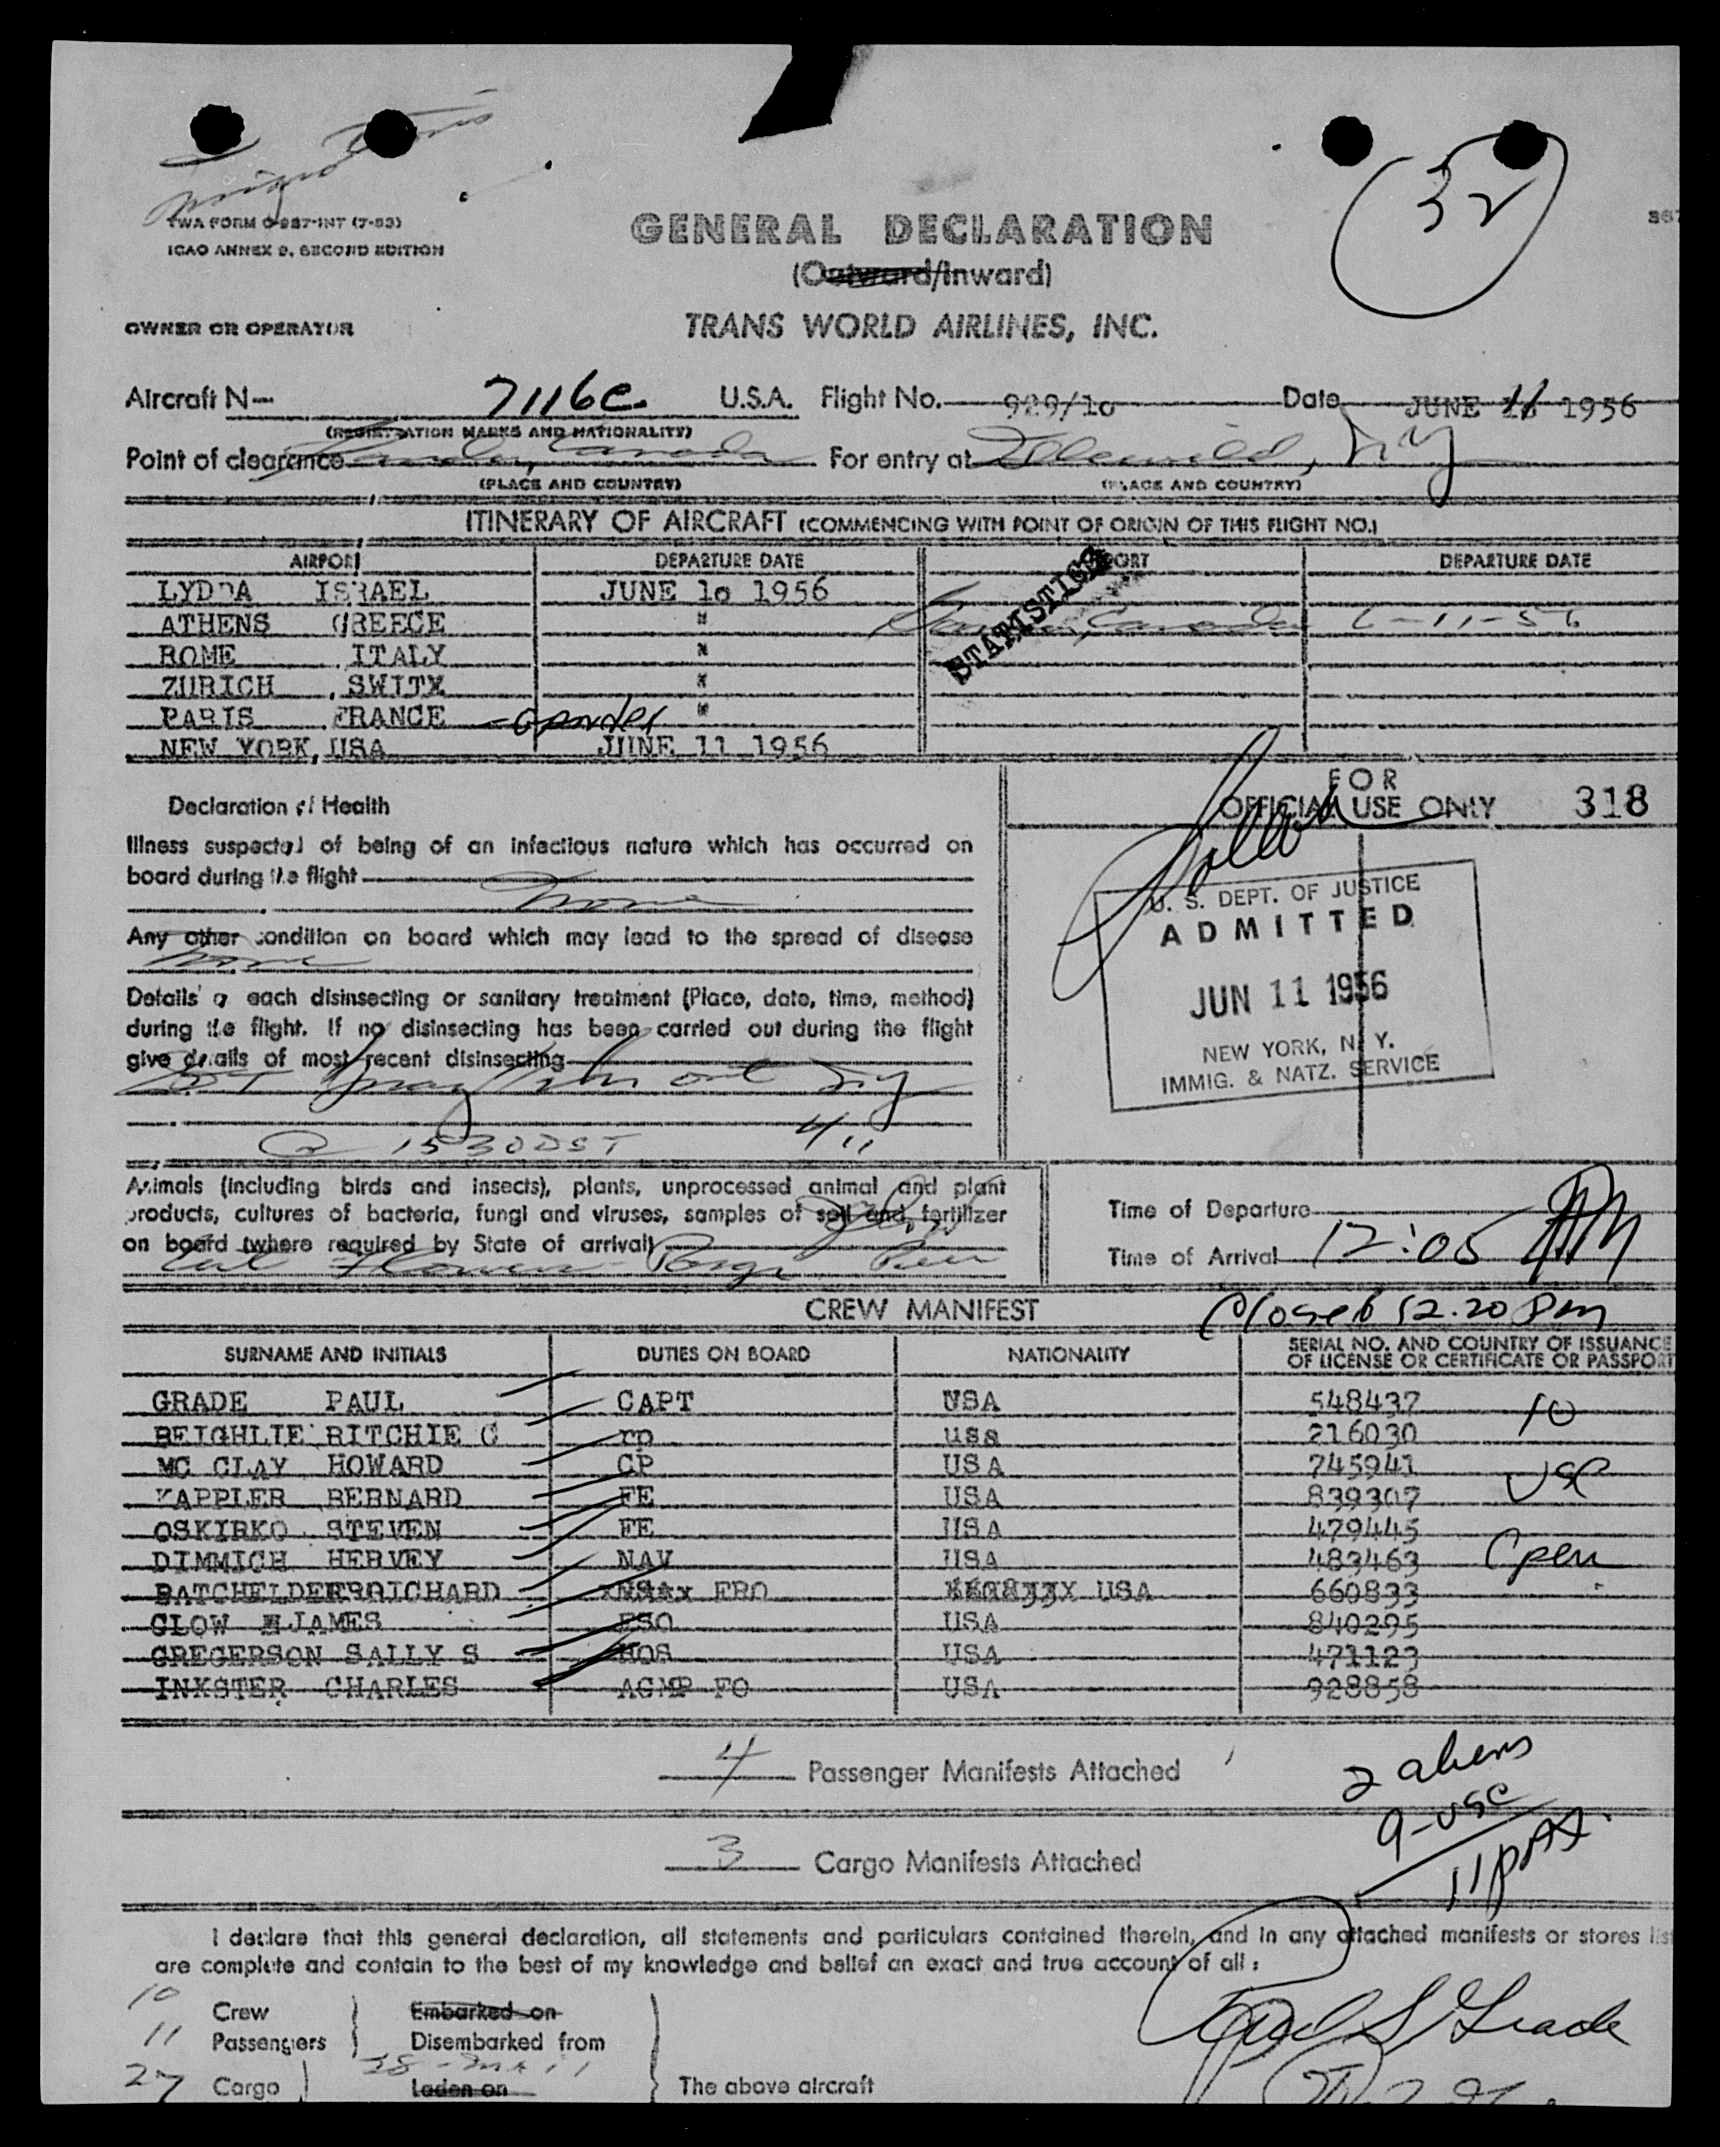 32
TWA FORM O-937-INT (7-53)
ICAO ANNEX 9, SECOND EDITION
GENERAL DECLARATION
(Outward/Inward)
OWNER OR OPERATOR
TRANS WORLD AIRLINES, INC.
Aircraft N— 7116C U.S.A. Flight No. 929/10 Date JUNE 11 1956
(REGISTRATION MARKS AND NATIONALITY)
Point of clearance Gander, Canada For entry at Idlewild, NY
(PLACE AND COUNTRY) (PLACE AND COUNTRY)
ITINERARY OF AIRCRAFT (COMMENCING WITH POINT OF ORIGIN OF THIS FLIGHT NO.)
AIRPORT DEPARTURE DATE AIRPORT DEPARTURE DATE
STATISTICS
LYDDA ISRAEL JUNE 10 1956
ATHENS GREECE " Gander, Canada 6-11-56
ROME ITALY "
ZURICH SWITX "
PARIS FRANCE - Gander "
NEW YORK, USA JUNE 11 1956
FOR
OFFICIAL USE ONLY 318
Declaration of Health
Illness suspected of being of an infectious nature which has occurred on
board during the flight
None
Any other condition on board which may lead to the spread of disease
None
Details of each disinsecting or sanitary treatment (Place, date, time, method)
during the flight. If no disinsecting has been carried out during the flight
give details of most recent disinsecting
spray
@ 1530 DST
U. S. DEPT. OF JUSTICE
ADMITTED
JUN 11 1956
NEW YORK, N. Y.
IMMIG. & NATZ. SERVICE
Animals (including birds and insects), plants, unprocessed animal and plant
products, cultures of bacteria, fungi and viruses, samples of soil and fertilizer
on board (where required by State of arrival)
Cut Flowers
Time of Departure
Time of Arrival 12:05 PM
CREW MANIFEST Closed 12.20 pm
SURNAME AND INITIALS DUTIES ON BOARD NATIONALITY SERIAL NO. AND COUNTRY OF ISSUANCE
OF LICENSE OR CERTIFICATE OR PASSPORT
GRADE PAUL CAPT USA 548437 10
BEIGHLIE RITCHIE C rp usa 216030
MC CLAY HOWARD CP USA 745941 USC
KAPPLER BERNARD FE USA 839307
OSKIRKO STEVEN FE USA 479445
DIMMICH HERVEY NAV USA 483463 Open
BATCHELDER RICHARD FRO USA 660833
CLOW JAMES FSO USA 840295
GREGERSON SALLY S HOS USA 471123
INKSTER CHARLES ACMP FO USA 928858
4 Passenger Manifests Attached
2 aliens
9-USC
11 pax.
3 Cargo Manifests Attached
I declare that this general declaration, all statements and particulars contained therein, and in any attached manifests or stores list
are complete and contain to the best of my knowledge and belief an exact and true account of all:
10 Crew Embarked on
11 Passengers Disembarked from
Paul S Grade
27 Cargo Laden on The above aircraft